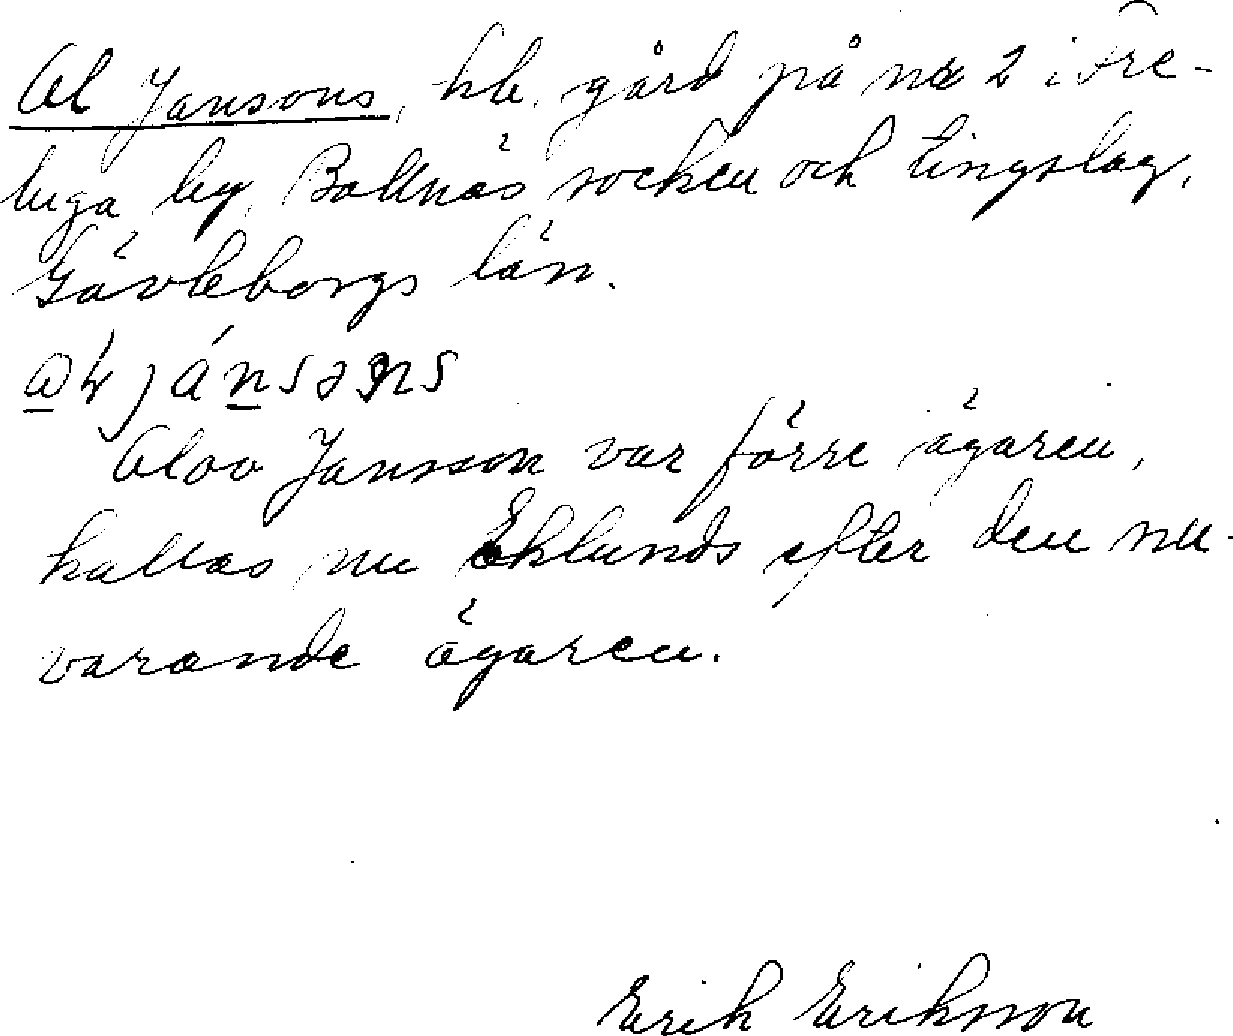 Ol Jansons, hb. gård på nr 2 i Fre-
luga by, Bollnäs socken och tingslag,
Gävleborgs län.
Olov Jansson var förre ägaren,
kallas nu Eklunds efter den nu-
varande ägaren.
Erik Eriksson